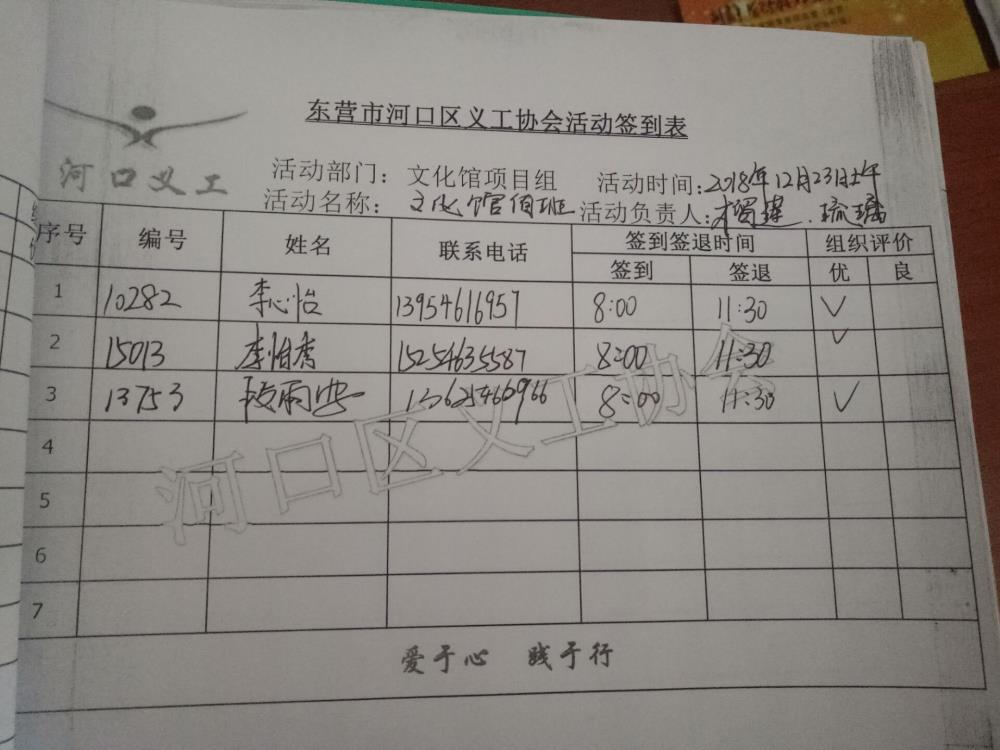 东营市河口区义工协会活动签到表
河口义工
活动部门： 文化馆项目组 活动时间：2018年12月23日上午
活动名称： 文化馆值班 活动负责人：
序号 编号 姓名 联系电话 签到签退时间 组织评价
签到 签退 优 良
1 10282 李心怡 13954616957 8:00 11:30 ✓
2 15013 15254635587 8:00 11:30 ✓
3 13753 段雨 8:00 11:30 ✓
4
5
6
7
河口区义工协会
爱于心 践于行